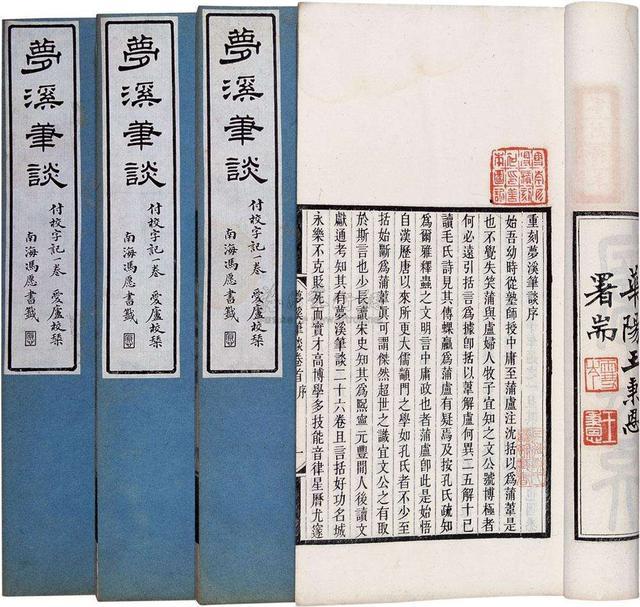 夢溪筆談
付校字記一卷 愛廬校栞
南海馮愿書籤
夢溪筆談
付校字記一卷 愛廬校栞
南海馮愿書籤
夢溪筆談
付校字記一卷 愛廬校栞
南海馮愿書籤
重刻夢溪筆談序
始吾幼時從塾師授中庸至蒲盧注沈括以爲蒲葦是
也不覺失笑蒲與盧婦人牧子宜知之文公號博極者
何必遠引括言爲據卽括以葦解盧何異二五解十已
讀毛氏詩見其傳蜾蠃爲蒲盧有疑焉及按孔氏疏知
爲爾雅釋蟲之文明言中庸政也者蒲盧卽此是始悟
自漢歷唐以來所更大儒顓門之學如孔氏者不少至
括始斷爲蒲葦眞可謂傑然超世之識宜文公之有取
於斯言也少長讀宋史知其爲熙寧元豐間人後讀文
獻通考知其有夢溪筆談二十六卷且言括好功名城
永樂不克貶死而實才高博學多技能音律星曆尤邃
夢溪筆談卷首序 一
華陽王秉恩
署耑